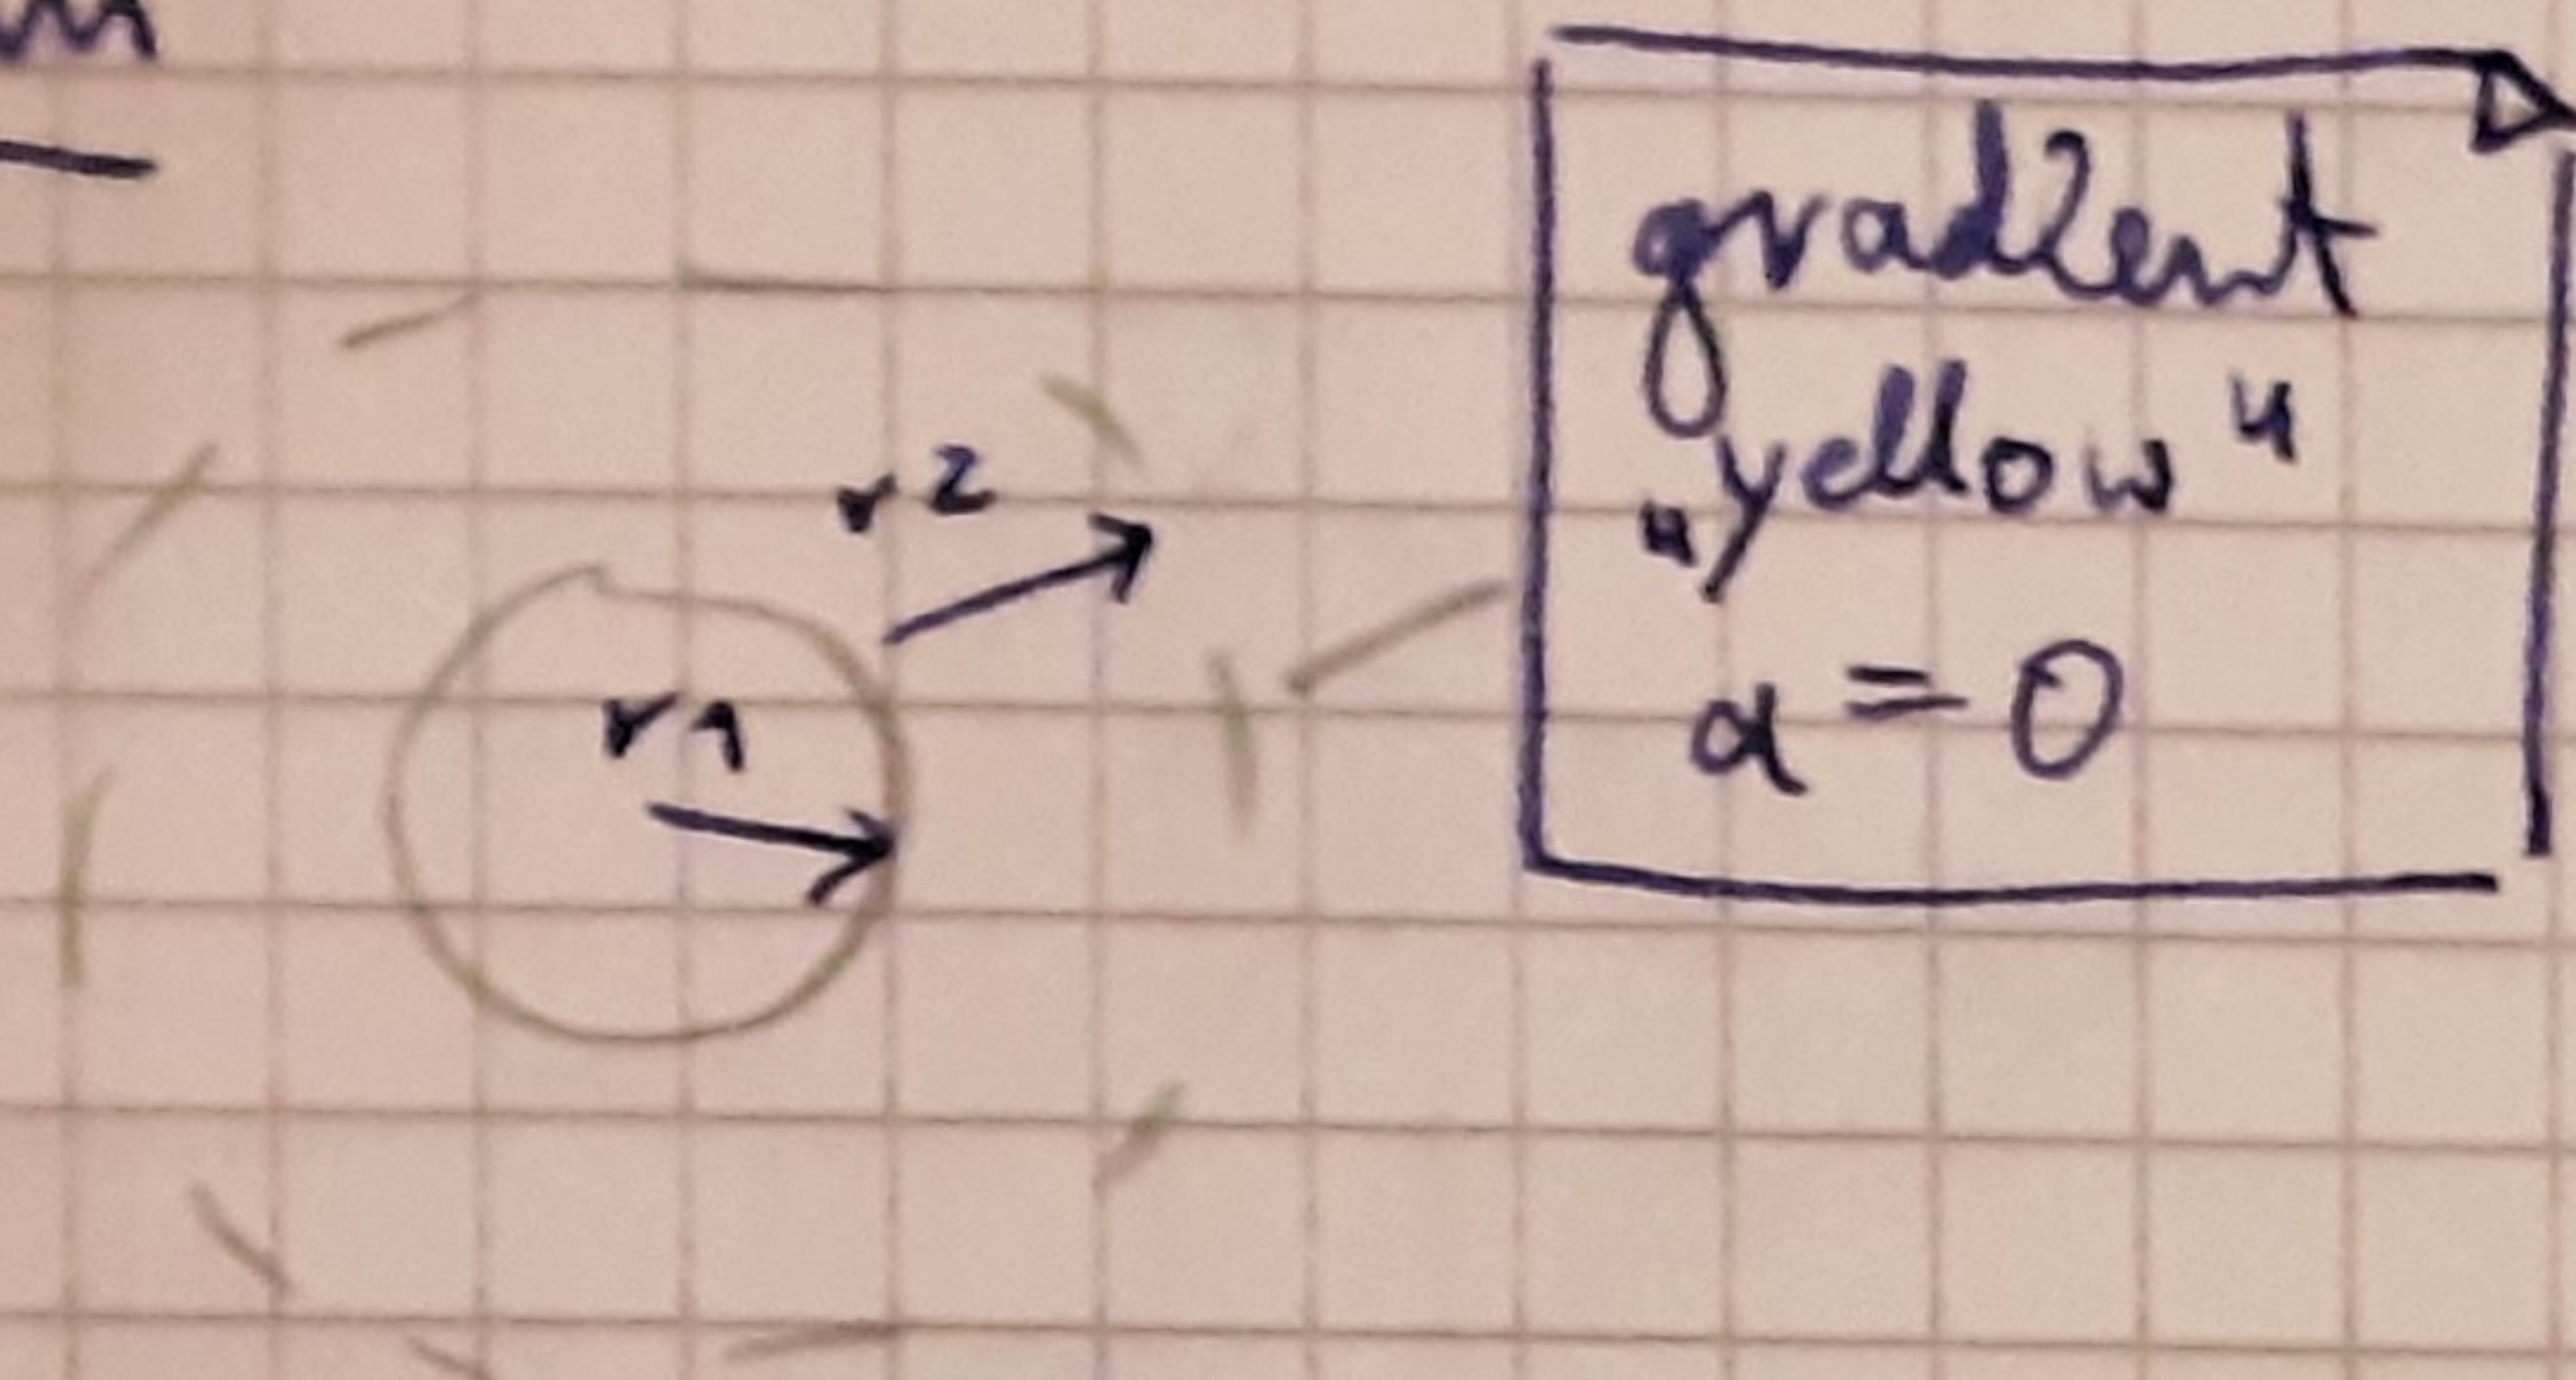 r2
r1
gradient
„yellow“
a = 0